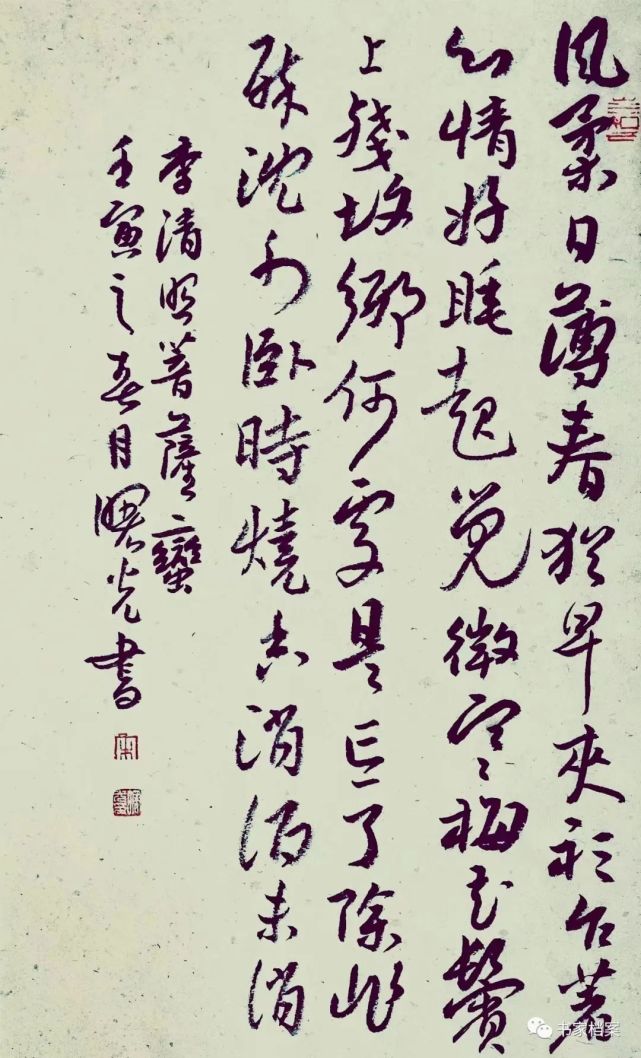 風柔日薄春猶早夾衫乍著
心情好睡起覺微寒梅花鬢
上殘故鄉何處是忘了除非
醉沈水臥時燒香消酒未消
李清照菩薩蠻
壬寅之春月曙光書
书家档案